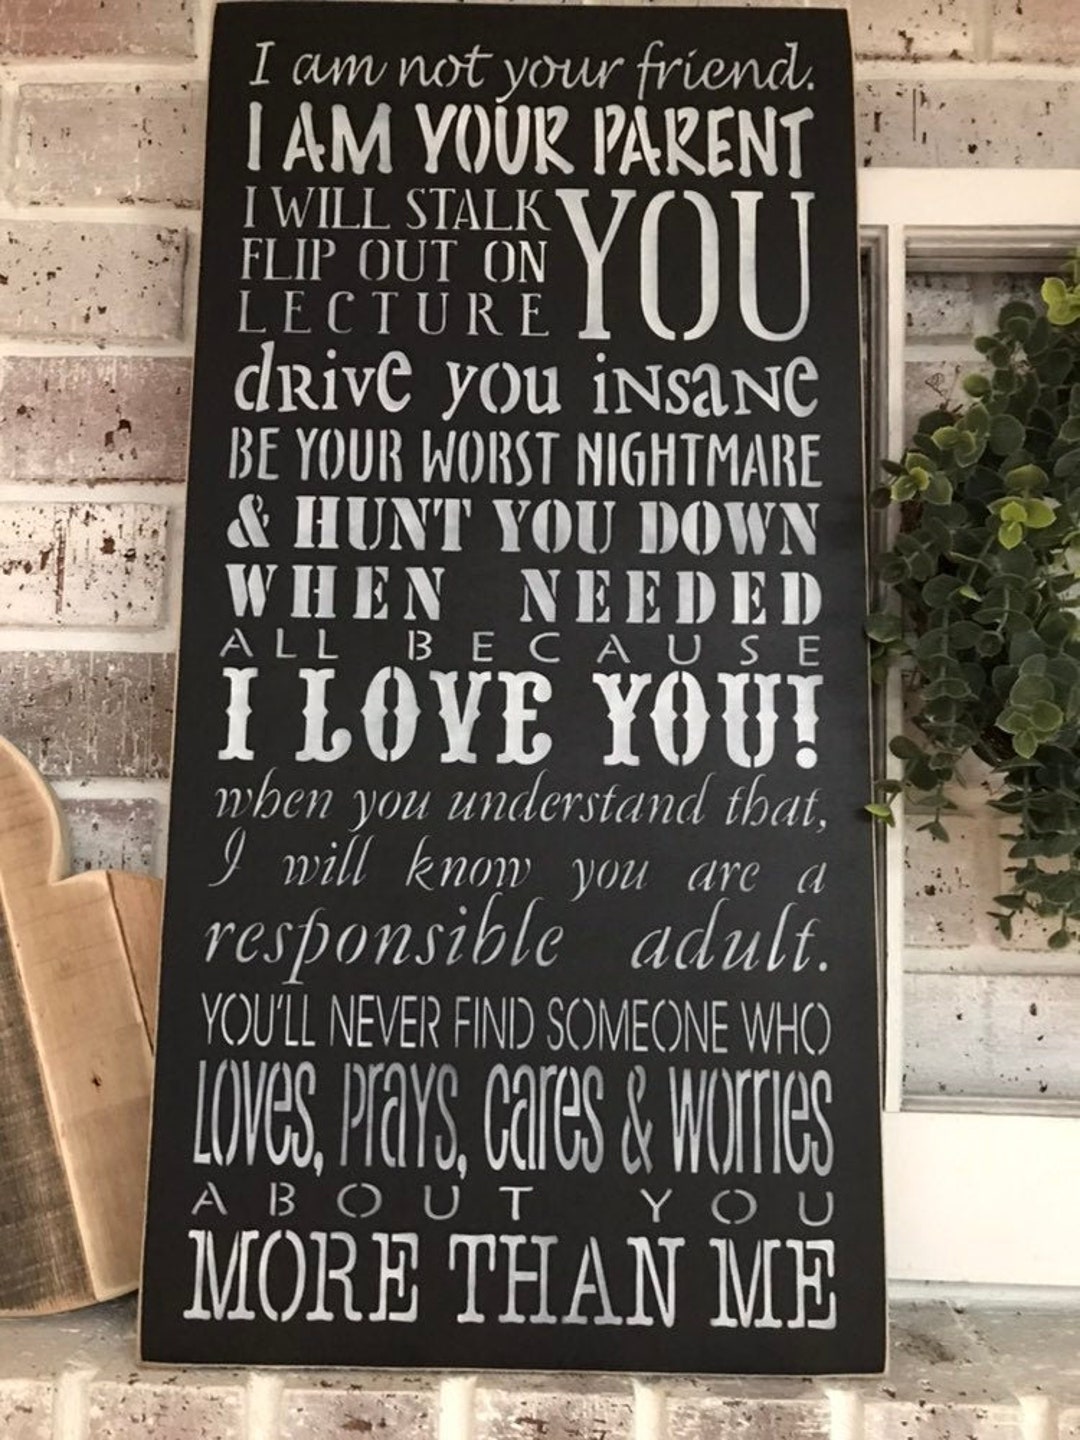 I am not your friend.
I AM YOUR PARENT
I WILL STALK
FLIP OUT ON
LECTURE
YOU
dRive you iNsaNe
BE YOUR WORST NIGHTMARE
& HUNT YOU DOWN
WHEN NEEDED
ALL BECAUSE
I LOVE YOU!
when you understand that,
I will know you are a
responsible adult.
YOU'LL NEVER FIND SOMEONE WHO
LOVes, PraYs, cares & worries
ABOUT YOU
MORE THAN ME